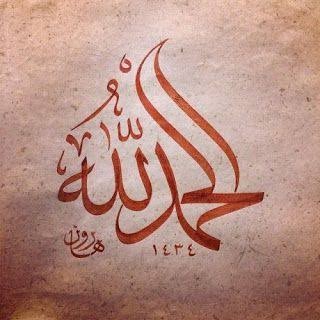 الحمد لله
هارون
١٤٣٤